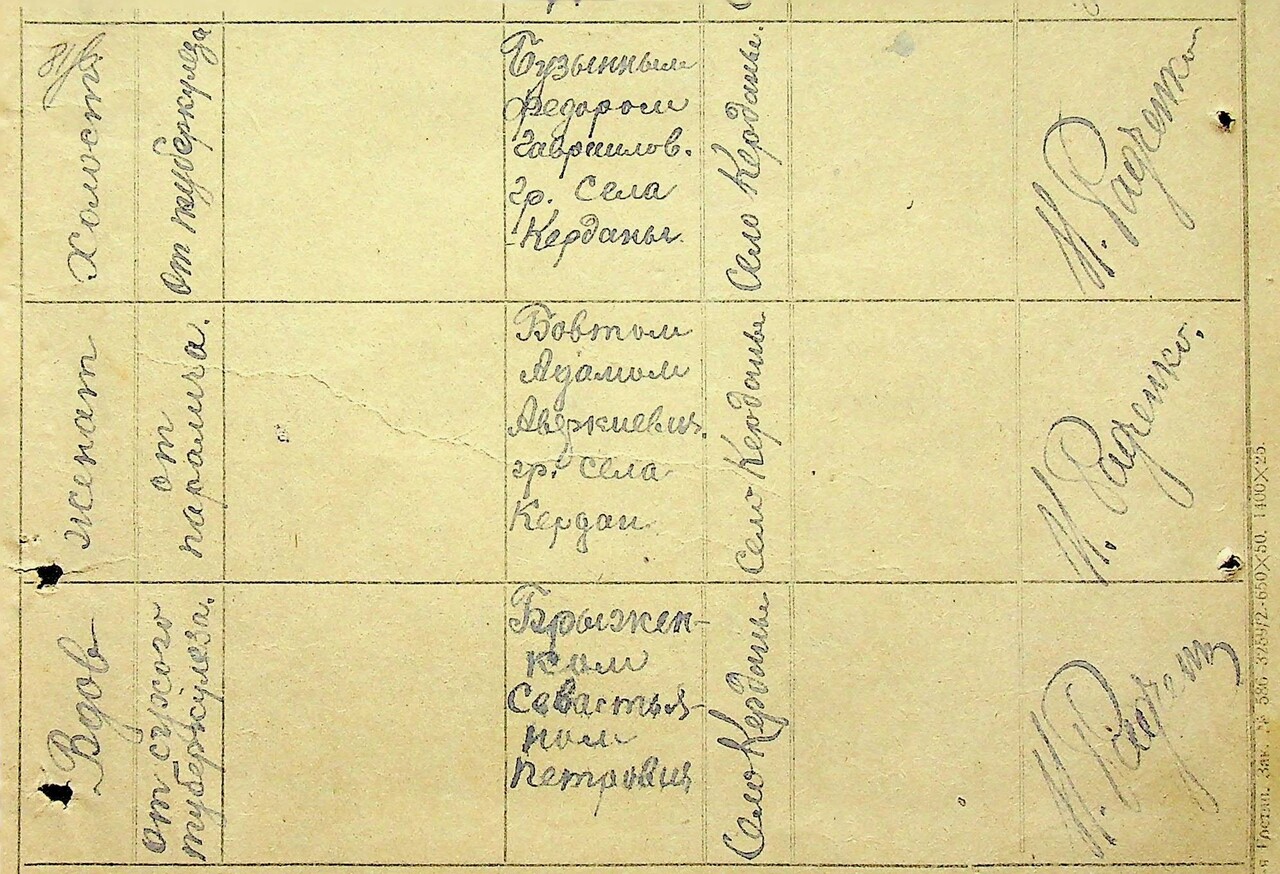 Холост.
От туберкулеза
Бузынным
Федором
Гавриилов.
гр. села
Керданы.
Село Керданы.
И. Радченко
женат
от
паралича.
Бовтом
Адамом
Авджиевич.
гр. села
Кердан
Село Керданы
И. Радченко.
Вдов
от сухого
туберкулеза.
Брыжен-
ком
Савастья-
ном
Петрович
Село Керданы
И. Радченк
Зак. № 586 3259/2-650×50. 1400×25.